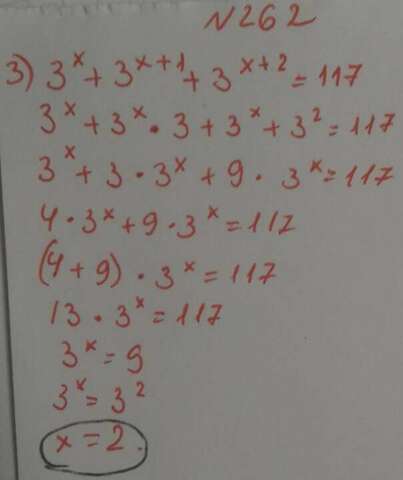 N262
3) 3^x + 3^{x+1} + 3^{x+2} = 117
3^x + 3^x · 3 + 3^x + 3^2 = 117
3^x + 3 · 3^x + 9 · 3^x = 117
4 · 3^x + 9 · 3^x = 117
(4 + 9) · 3^x = 117
13 · 3^x = 117
3^x = 9
3^x = 3^2
x = 2.